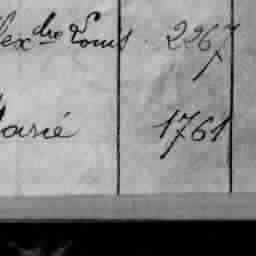 lexdre Louis 2267
Marié 1761